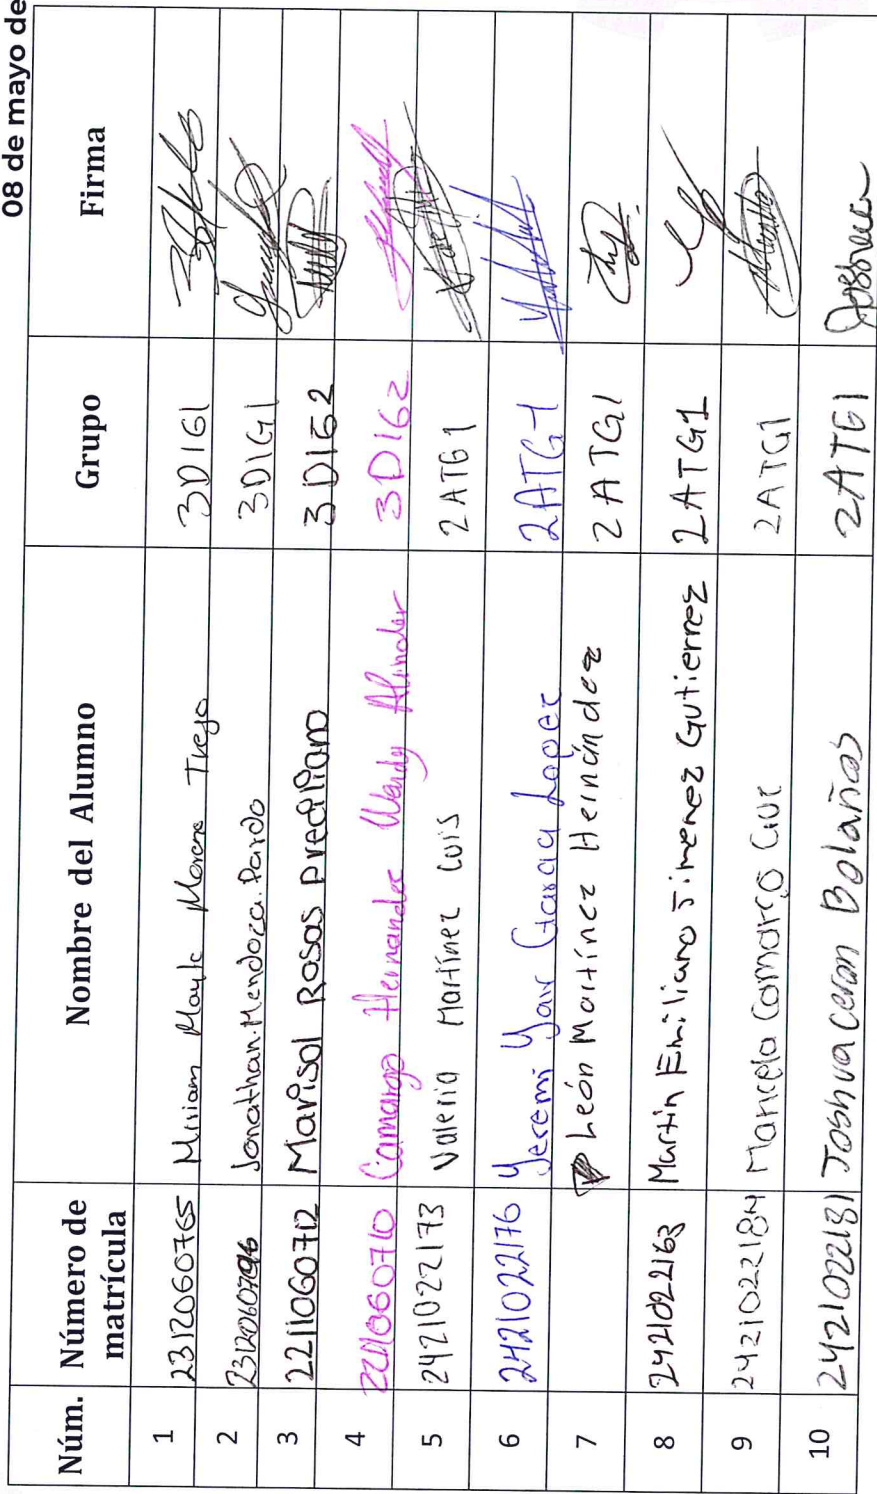 08 de mayo de
Núm. Número de matrícula Nombre del Alumno Grupo Firma
1 2312060765 Miriam Mayte Moreno Trejo 3D1G1
2 2312060796 Jonathan Mendoza Pardo 3D1G1
3 2211060712 Marisol Rosas Prediliano 3D1G2
4 2211060710 Camargo Hernandez Wendy 3D1G2
5 2421022173 Valeria Martínez Luis 2ATG1
6 2421022176 Yeremi Yair Garcia Lopez 2ATG-1
7 León Martínez Hernández 2ATG1
8 2421022163 Martin Emiliano Jimenez Gutierrez 2ATG1
9 2421022184 Marcela Camargo 2ATG1
10 2421022181 Joshua Ceron Bolaños 2ATG1 Joshua